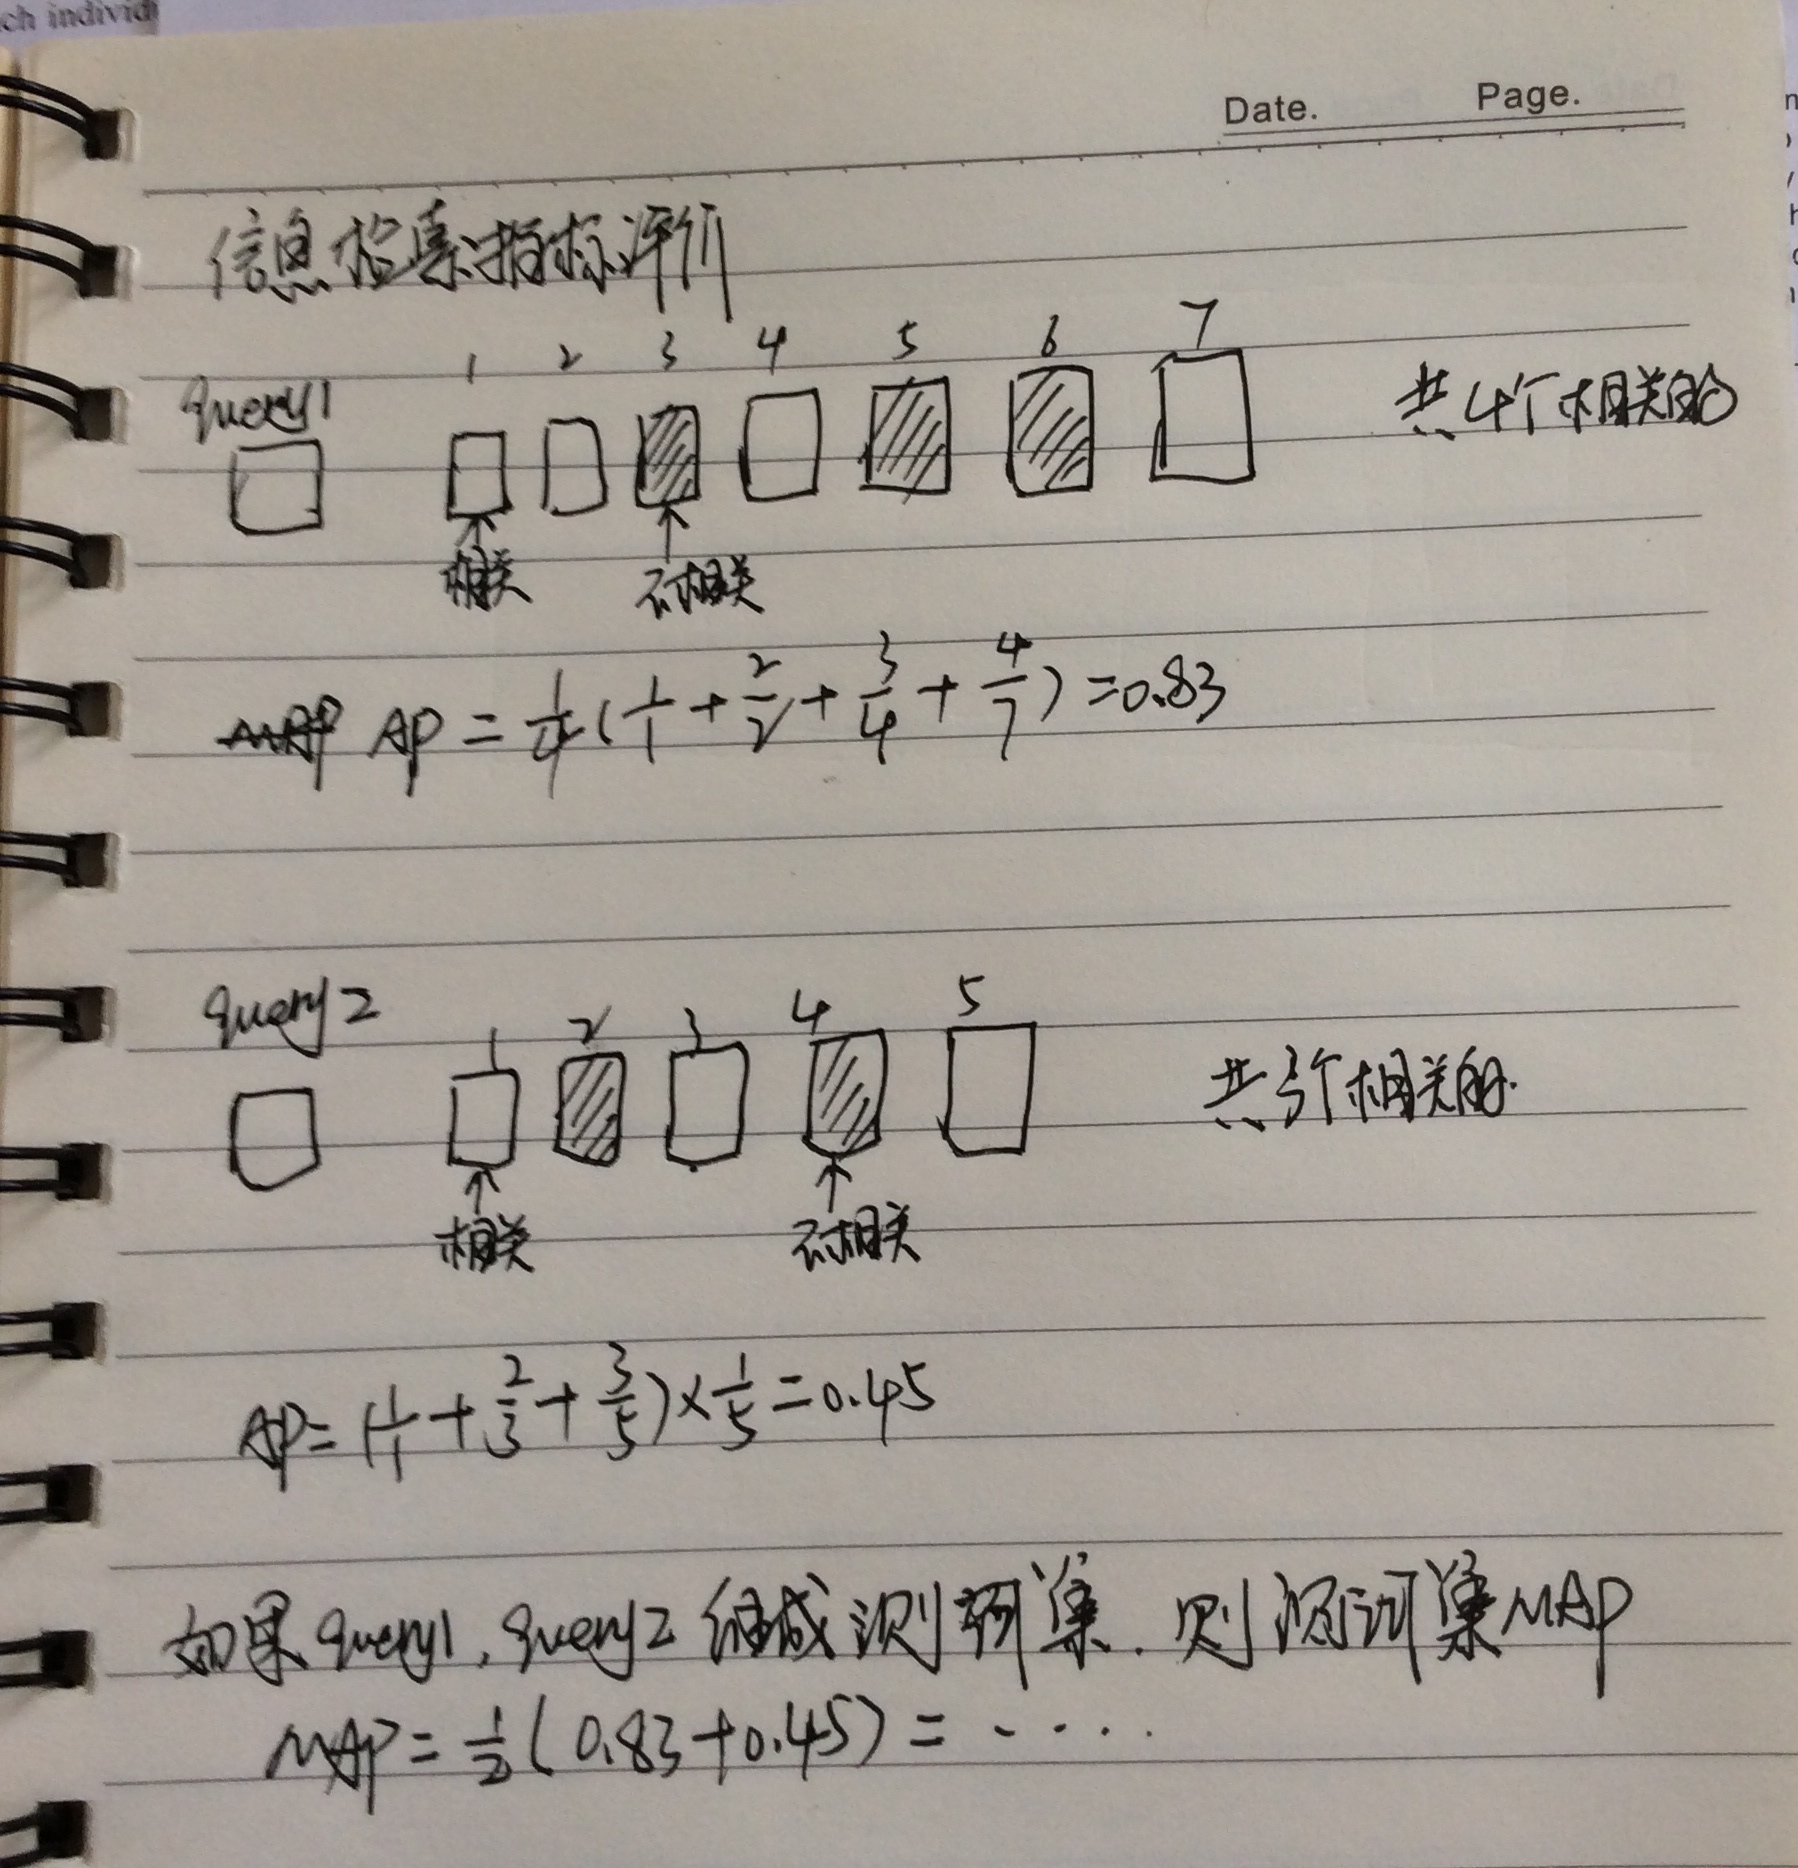 ch individ
Date. Page.
信息检索指标评价
query1 1 2 3 4 5 6 7 共4个相关的
相关 不相关
MAP AP = 1/4 ( 1/1 + 2/2 + 3/4 + 4/7 ) = 0.83
query2 1 2 3 4 5 共3个相关的.
相关 不相关
AP = ( 1/1 + 2/3 + 3/5 ) × 1/5 = 0.45
如果query1, query2 组成测试集. 则测试集MAP
MAP = 1/2 ( 0.83 + 0.45 ) = ....